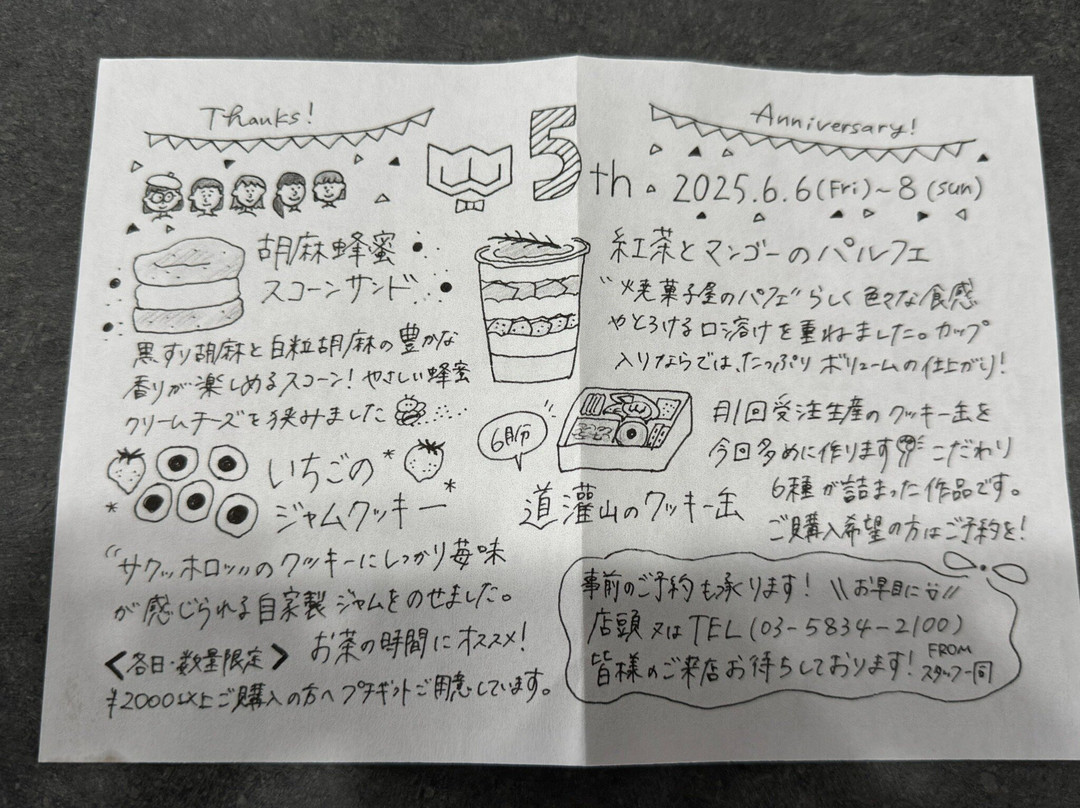 Thanks!
5th
Anniversary!
2025.6.6(Fri)~8(sun)
胡麻蜂蜜
スコーンサンド
黒すり胡麻と白粒胡麻の豊かな
香りが楽しめるスコーン!やさしい蜂蜜
クリームチーズを挟みました
紅茶とマンゴーのパルフェ
"焼菓子屋のパフェ"らしく色々な食感
やとろける口溶けを重ねました。カップ
入りならでは、たっぷりボリュームの仕上がり!
いちごの
ジャムクッキー
"サクッホロッ"のクッキーにしっかり苺味
が感じられる自家製ジャムをのせました。
お茶の時間にオススメ!
6月分
道灌山のクッキー缶
月1回受注生産のクッキー缶を
今回多めに作ります こだわり
6種が詰まった作品です。
ご購入希望の方はご予約を!
<各日・数量限定>
¥2000以上ご購入の方へプチギフトご用意しています。
事前のご予約も承ります! \\お早目に//
店頭又はTEL(03-5834-2100)
皆様のご来店お待ちしております!
FROM
スタッフ一同